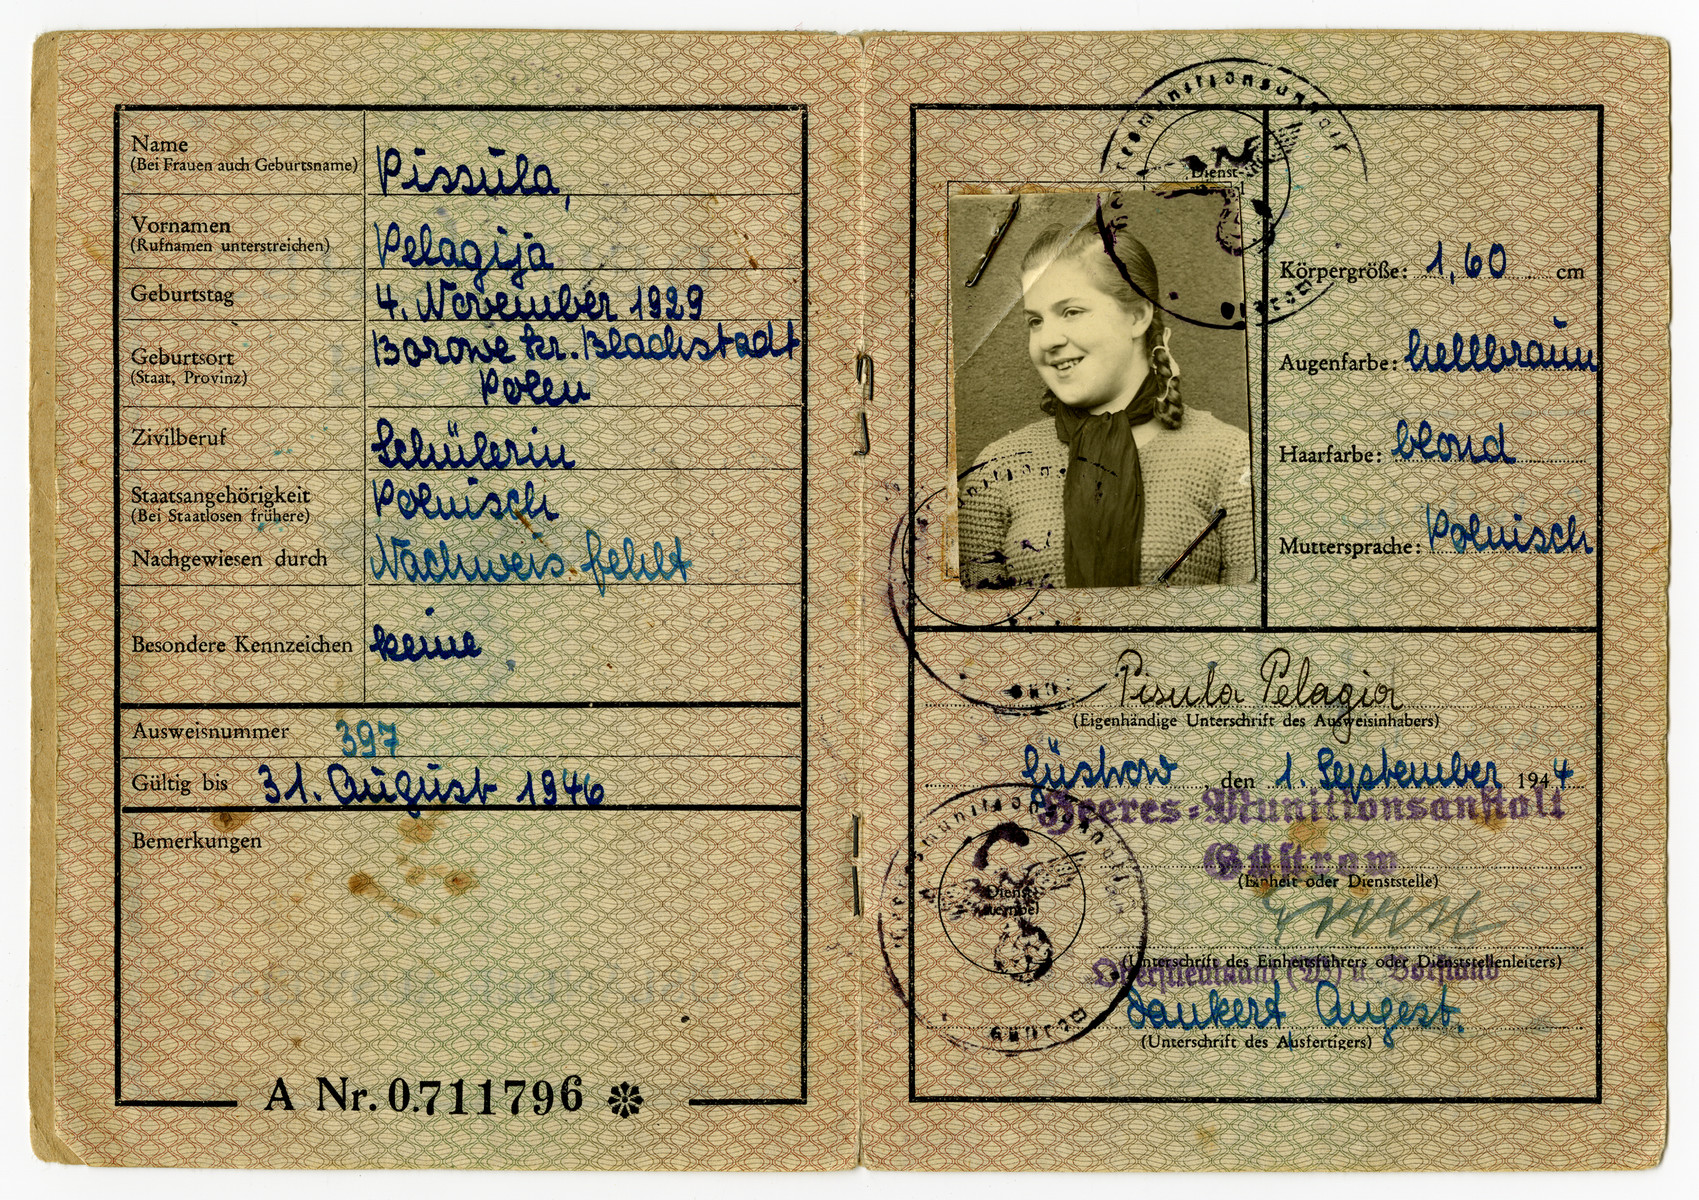 Name
(Bei Frauen auch Geburtsname)
Pissula,
Vornamen
(Rufnamen unterstreichen)
Pelagija
Geburtstag
4. November 1929
Geburtsort
(Staat, Provinz)
Borowe kr. Blachstadt
Polen
Zivilberuf
Schülerin
Staatsangehörigkeit
(Bei Staatlosen frühere)
Polnisch
Nachgewiesen durch
Nachweis fehlt
Besondere Kennzeichen
keine
Ausweisnummer 397
Gültig bis 31. August 1946
Bemerkungen
A Nr. 0.711796
Dienst-
Körpergröße: 1,60 cm
Augenfarbe: hellbraun
Haarfarbe: blond
Muttersprache: Polnisch
Pisula Pelagia
(Eigenhändige Unterschrift des Ausweisinhabers)
Güstrow, den 1. September 1944
Heeres-Munitionsanstalt
Güstrow
(Einheit oder Dienststelle)
(Unterschrift des Einheitsführers oder Dienststellenleiters)
Oberstleutnant (W) u. Vorstand
Dankert Angest.
(Unterschrift des Ausfertigers)